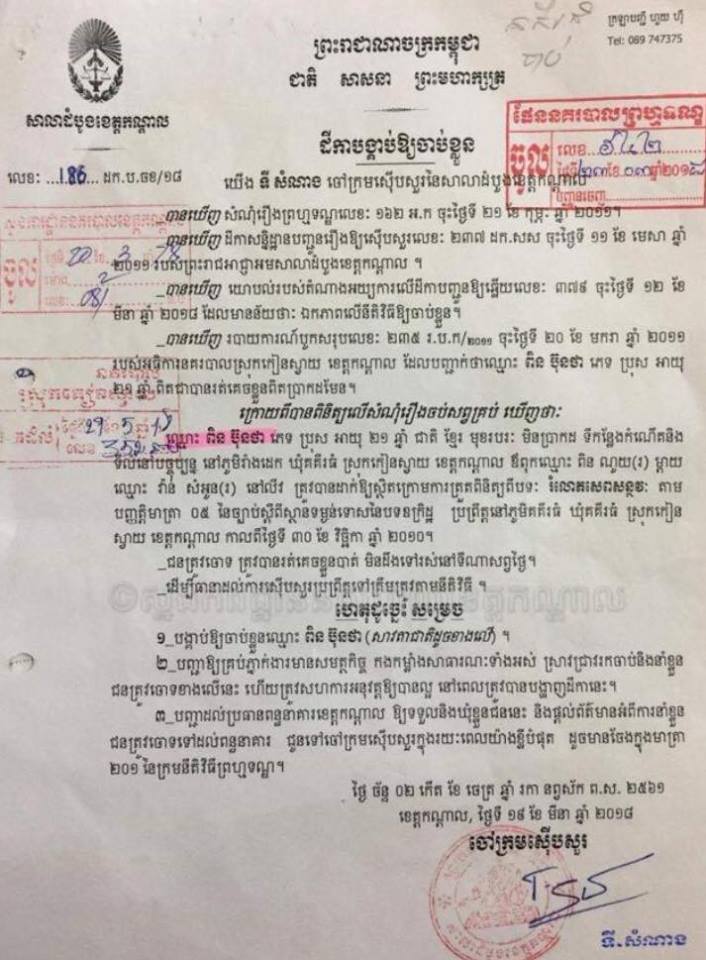 ក្រឡាបញ្ជី ហួយ ហ៊ី
Tel: 089 747375
ព្រះរាជាណាចក្រកម្ពុជា
ជាតិ សាសនា ព្រះមហាក្សត្រ
សាលាដំបូងខេត្តកណ្តាល
ផែននគរបាលព្រហ្មទណ្ឌ
ចូល
លេខ
ដីកាបង្គាប់ឱ្យចាប់ខ្លួន
លេខៈ ...186... ដក.ប.ចខ/១៨
យើង ទី សំណាង ចៅក្រមស៊ើបសួរនៃសាលាដំបូងខេត្តកណ្តាល
_បានឃើញ សំណុំរឿងព្រហ្មទណ្ឌលេខៈ ១៦២ អ.ក ចុះថ្ងៃទី ២១ ខែ កុម្ភៈ ឆ្នាំ ២០១១។
_បានឃើញ ដីកាសន្និដ្ឋានបញ្ជូនរឿងឱ្យស៊ើបសួរលេខៈ ២៣៧ ដក.សស ចុះថ្ងៃទី ១១ ខែ មេសា ឆ្នាំ
២០១១ របស់ព្រះរាជអាជ្ញាអមសាលាដំបូងខេត្តកណ្តាល ។
_បានឃើញ យោបល់របស់តំណាងអយ្យការលើដីកាបញ្ជូនឱ្យឆ្លើយលេខៈ ៣៧៩ ចុះថ្ងៃទី ១២ ខែ
មីនា ឆ្នាំ ២០១៨ ដែលមានន័យថាៈ ឯកភាពលើនីតិវិធីឱ្យចាប់ខ្លួន។
_បានឃើញ របាយការណ៍បូកសរុបលេខៈ ២៣៥ រ.ប.ក/២០១១ ចុះថ្ងៃទី ២០ ខែ មករា ឆ្នាំ ២០១១
របស់អធិការនគរបាលស្រុកកៀនស្វាយ ខេត្តកណ្តាល ដែលបញ្ជាក់ថាឈ្មោះ ពិន ប៊ុនថា ភេទ ប្រុស អាយុ
២១ ឆ្នាំ ពិតជាបានរត់គេចខ្លួនពិតប្រាកដមែន។
ក្រោយពីបានពិនិត្យលើសំណុំរឿងចប់សព្វគ្រប់ ឃើញថាៈ
ឈ្មោះ ពិន ប៊ុនថា ភេទ ប្រុស អាយុ ២១ ឆ្នាំ ជាតិ ខ្មែរ មុខរបរៈ មិនប្រាកដ ទីកន្លែងកំណើតនិង
ទីលំនៅបច្ចុប្បន្ន នៅភូមិវាំងដេក ឃុំគគីរធំ ស្រុកកៀនស្វាយ ខេត្តកណ្តាល ឪពុកឈ្មោះ ពិន ណូយ(រ) ម្តាយ
ឈ្មោះ វ៉ាន់ សំអូន(រ) នៅលីវ ត្រូវបានដាក់ឱ្យស្ថិតក្រោមការត្រួតពិនិត្យពីបទៈ រំលោភសេពសន្ថវៈ តាម
បញ្ញត្តិមាត្រា ០៥ នៃច្បាប់ស្តីពីស្ថានទម្ងន់ទោសនៃបទឧក្រិដ្ឋ ប្រព្រឹត្តនៅភូមិគគីរធំ ឃុំគគីរធំ ស្រុកកៀន
ស្វាយ ខេត្តកណ្តាល កាលពីថ្ងៃទី ៣០ ខែ វិច្ឆិកា ឆ្នាំ ២០១០។
_ជនត្រូវចោទ ត្រូវបានរត់គេចខ្លួនបាត់ មិនដឹងទៅរស់នៅទីណាសព្វថ្ងៃ។
_ដើម្បីធានាដល់ការស៊ើបសួរប្រព្រឹត្តទៅត្រឹមត្រូវតាមនីតិវិធី ។
ហេតុដូច្នេះ សម្រេច
១_បង្គាប់ឱ្យចាប់ខ្លួនឈ្មោះ ពិន ប៊ុនថា (សាវតាជាតិដូចខាងលើ) ។
២_បញ្ជាឱ្យគ្រប់ភ្នាក់ងារមានសមត្ថកិច្ច កងកម្លាំងសាធារណៈទាំងអស់ ស្រាវជ្រាវរកចាប់និងនាំខ្លួន
ជនត្រូវចោទខាងលើនេះ ហើយត្រូវសហការអនុវត្តឱ្យបានល្អ នៅពេលត្រូវបានបង្ហាញដីកានេះ។
៣_បញ្ជាដល់ប្រធានពន្ធនាគារខេត្តកណ្តាល ឱ្យទទួលនិងឃុំខ្លួនជននេះ និងផ្តល់ព័ត៌មានអំពីការនាំខ្លួន
ជនត្រូវចោទទៅដល់ពន្ធនាគារ ជូនទៅចៅក្រមស៊ើបសួរក្នុងរយៈពេលយ៉ាងខ្លីបំផុត ដូចមានចែងក្នុងមាត្រា
២០១ នៃក្រមនីតិវិធីព្រហ្មទណ្ឌ។
ថ្ងៃ ច័ន្ទ ០២ កើត ខែ ចេត្រ ឆ្នាំ រកា នព្វស័ក ព.ស. ២៥៦១
ខេត្តកណ្តាល, ថ្ងៃទី ១៩ ខែ មីនា ឆ្នាំ ២០១៨
ចៅក្រមស៊ើបសួរ
ទី.សំណាង